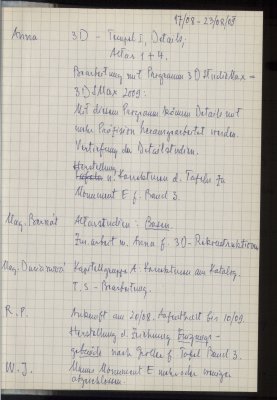 17/08 - 23/08/09
Anna 3D - Tempel I, Details;
Altar 1 + 4.
Bearbeitung mit Programm 3D StudioMax =
3DSMax 2009.
Mit diesem Programm können Details mit
mehr Präzision herausgearbeitet werden.
Vertiefung der Detailstudien.
Herstellung
u. Korrekturen d. Tafeln zu
Monument E f. Band 3.
Mag. Altarstudien: Basen.
Zus.arbeit m. Anna f. 3D-Rekonstruktion
Mag. Kapitellgruppe A. Korrekturen am Katalog.
T.S - Bearbeitung.
R.P. Ankunft am 20/08. Aufenthalt bis 10/09.
Herstellung d. Zeichnung
gebäude nach f. Tafel Band 3.
W.J. Monument E mehr oder weniger
abgeschlossen.